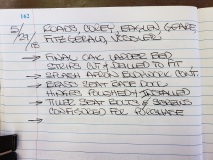 162
5/29/18 ROADS, COVEY, EAGLEN, GEARE
FITZGERALD, WOOSLEY
→ FINAL CAR LADDER BED
STRIPS CUT & DRILLED TO FIT
→ SPLASH APRON ENDWORK CONT.
→ BRASS SEAT BACK DOOR
HINGES POLISHED & INSTALLED
→ TILLER SEAT BOLTS & SCREWS
CONFIGURED FOR PURCHASE
→